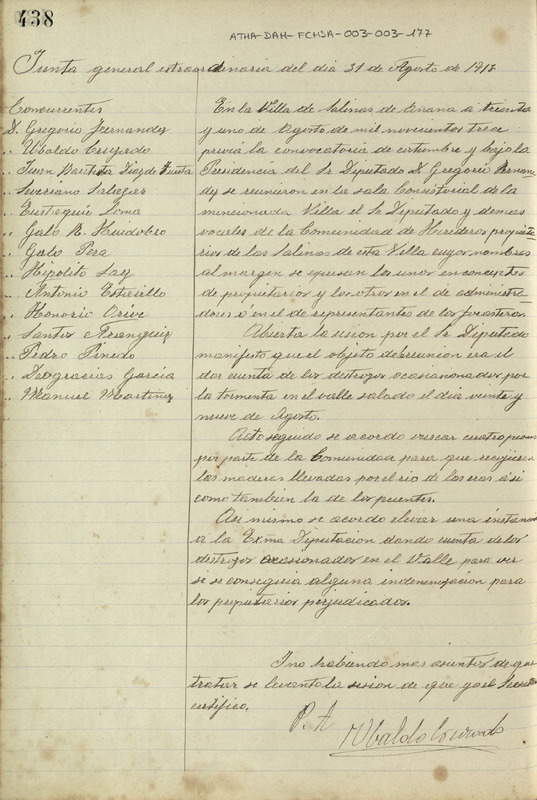 438
ATHA-DAH-FCHSA-003-003-177
Junta general extraordinaria del dia 31 de Agosto de 1913
Concurrentes
D. Gregorio Fernandez
" Ubaldo Cruzado
" Juan Bautista Diaz de Tuesta
" Severiano Salazar
" Eustaquio Loma
" Galo B. Huidobro
" Galo Pera
" Hipolito Saez
" Antonio Estavillo
" Honorio Orive
" Santos Aranguiz
" Pedro Pinedo
" Deogracias Garcia
" Manuel Martinez
En la Villa de Salinas de Añana a treinta
y uno de Agosto de mil novecientos trece
previa la convocatoria de costumbre y bajo la
Presidencia del Sr Diputado D. Gregorio Fernan-
dez se reunieron en la sala Consistorial de la
mencionada Villa el Sr Diputado y demas
vocales de la Comunidad de Herederos propieta-
rios de las Salinas de esta Villa cuyos nombres
al margen se espresan los unos en concepto
de propietarios y los otros en el de administra-
dores o en el de representantes de los forasteros.
Abierta la sesion por el Sr Diputado
manifesto que el objeto de la reunion era el
dar cuenta de los destrozos ocasionados por
la tormenta en el valle salado el dia veinte y
nueve de Agosto.
Acto seguido se acordo buscar cuatro
por parte de la Comunidad para que recojiesen
las maderas llevadas por el rio de las eras asi
como tambien la de los puentes.
Asi mismo se acordo elevar una instancia
a la Exma Diputacion dando cuenta de los
destrozos ocasionados en el Valle para ver
si se conseguia alguna indemnizacion para
los propietarios perjudicados.
Y no habiendo mas asuntos de que
tratar se levanto la sesion de que yo el Secretario
certifico.
P.A
Ubaldo Cruzado